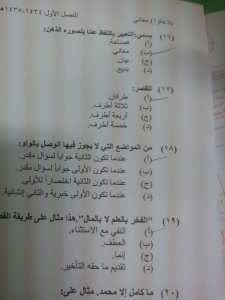 بلاغة (١) معاني
الفصل الأول ١٤٣٤-١٤٣٥هـ
(١٦) يسمى: التعبير باللفظ عما يتصوره الذهن:
(أ) فصاحة.
(ب) معاني.
(ج) بيان.
(د) بديع.
(١٧) للقصر:
(أ) طرفان.
(ب) ثلاثة أطرف.
(ج) أربعة أطرف.
(د) خمسة أطرف.
(١٨) من المواضع التي لا يجوز فيها الوصل بالواو:
(أ) عندما تكون الثانية جواباً لسؤال مقدر.
(ب) عندما تكون الأولى جواباً لسؤال مقدر.
(ج) عندما تكون الثانية اختصاراً للأولى.
(د) عندما تكون الأولى خبرية والثاني إنشائية.
(١٩) "الفخر بالعلم لا بالمال". هذا مثال على طريقة
(أ) النفي مع الاستثناء.
(ب) العطف.
(ج) إنما.
(د) تقديم ما حقه التأخير.
(٢٠) ما كامل إلا محمد. مثال على: